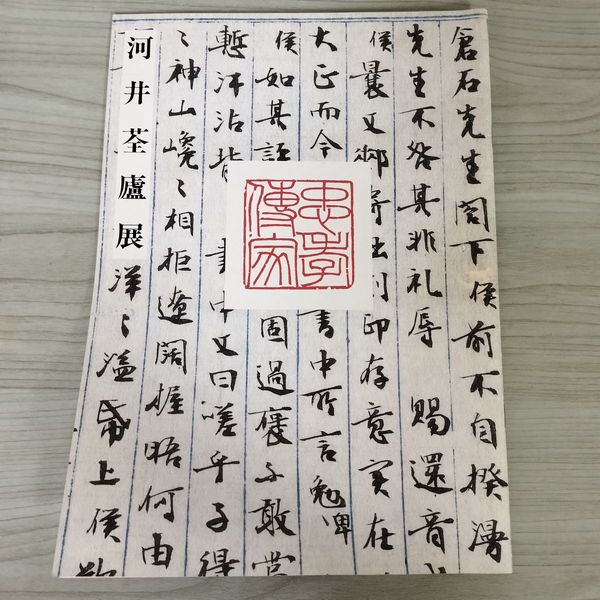 河井荃廬展
倉石先生閣下僕前不自揆漫
先生不咎其非礼辱 賜還音
僕曩 寄 刻印存意実在
大正而今 書中所言勉
僕如其語 固過褒不敢
慙汗沾背 書中又曰嗟乎子得
〻神山巉〻相拒遼闊握晤何由
洋〻溢帋上僕
忠孝
傳家